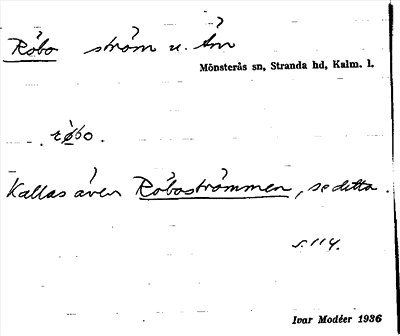 Råbo ström u. Åm
Mönsterås sn, Stranda hd, Kalm. l.
Kallas även Råboströmmen, se detta.
s. 114.
Ivar Modéer 1936